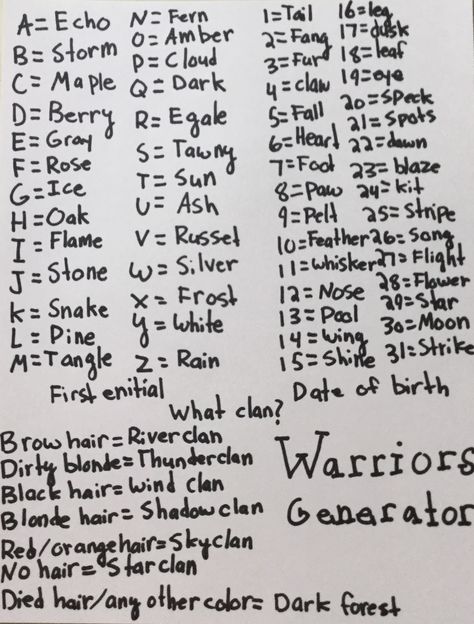 A=Echo
B= Storm
C= Maple
D=Berry
E=Gray
F=Rose
G=Ice
H=Oak
I=Flame
J=Stone
K= Snake
L= Pine
M=Tangle
N= Fern
O= Amber
P= Cloud
Q= Dark
R= Egale
S= Tawny
T= Sun
U= Ash
V= Russet
W= Silver
X= Frost
Y= White
Z= Rain
First enitial
1=Tail
2=Fang
3=Fur
4=claw
5=Fall
6=Heart
7=Foot
8=Paw
9=Pelt
10=Feather
11=Whisker
12=Nose
13=Pool
14=wing
15=Shine
16=leg
17=dusk
18=leaf
19=eye
20=Speck
21=Spots
22=dawn
23=blaze
24=kit
25=Stripe
26=Song
27=Flight
28=Flower
29=Star
30=Moon
31=Strike
Date of birth
What clan?
Brow hair=Riverclan
Dirty blonde=Thunderclan
Black hair=Wind clan
Blonde hair=Shadow clan
Red/orange hair=Skyclan
No hair=Starclan
Died hair/any other color= Dark forest
Warriors
Generator